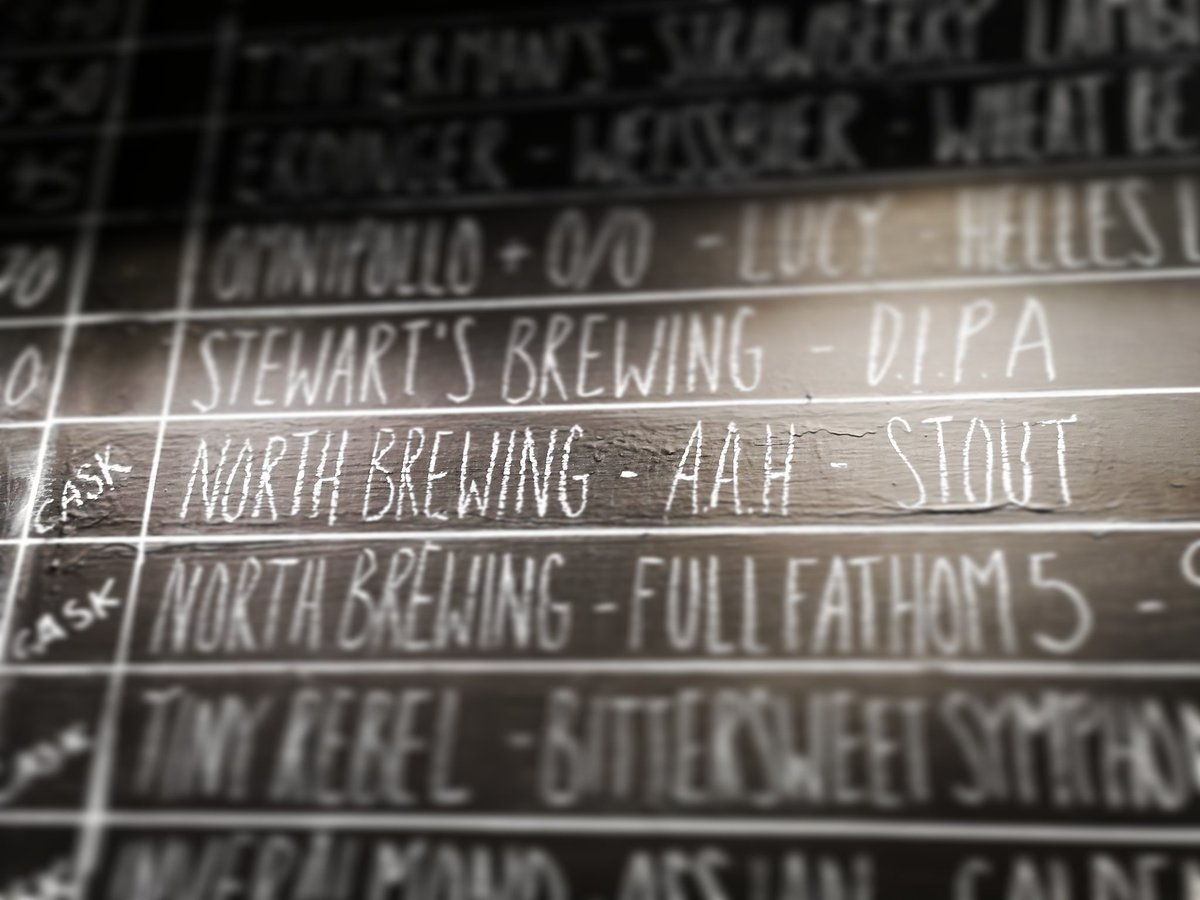 TIMMERMAN'S - STRAWBERRY
5.50 ERDINGER - WEISSBIER - WHEAT
OMNIPOLLO + O/O - LUCY - HELLES
STEWART'S BREWING - D.I.P.A
CASK NORTH BREWING - A.A.H - STOUT
CASK NORTH BREWING - FULL FATHOM 5 -
CASK TINY REBEL - BITTERSWEET
INVERALMOND OSSIAN